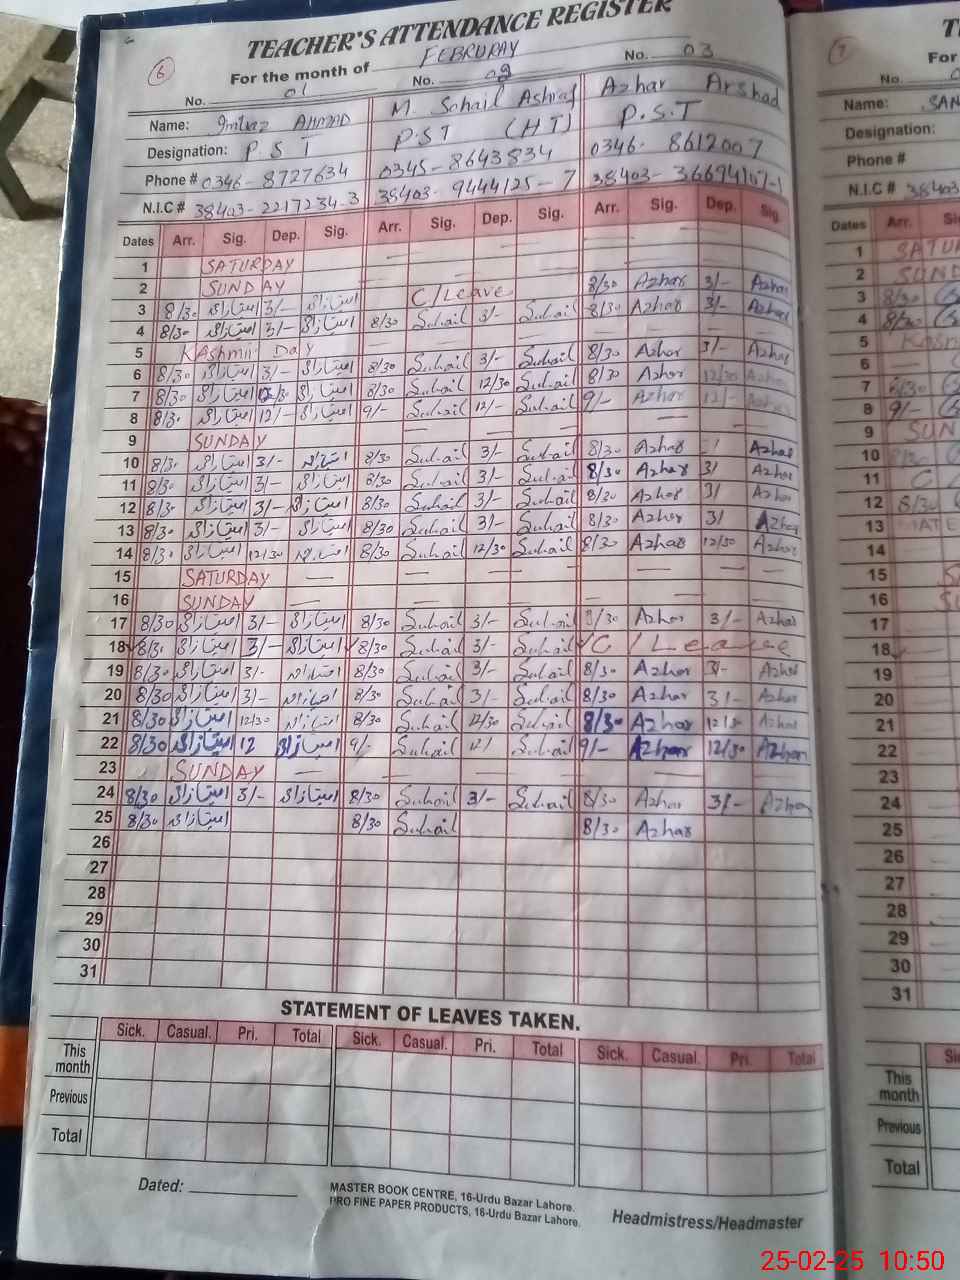 TEACHER'S ATTENDANCE REGISTER
6
For the month of FEBRURAY
No. 01 No. 02 No. 03
Name: Imtiaz AHMAD M. Sohail Ashraf Azhar Arshad
Designation: P.S.T PST (HT) P.S.T
Phone # 0346-8727634 0345-8643834 0346-8612007
N.I.C # 38403-2217234-3 38403-9444125-7 38403-36694107-1
Dates Arr. Sig. Dep. Sig. Arr. Sig. Dep. Sig. Arr. Sig. Dep. Sig.
1 SATURDAY
2 SUNDAY
3 8/30 امتیاز 3/- امتیاز C/Leave 8/30 Azhar 3/- Azhar
4 8/30 امتیاز 3/- امتیاز 8/30 Suhail 3/- Suhail 8/30 Azhar 3/- Azhar
5 Kashmir Day
6 8/30 امتیاز 3/- امتیاز 8/30 Suhail 3/- Suhail 8/30 Azhar 3/- Azhar
7 8/30 امتیاز 12/30 امتیاز 8/30 Suhail 12/30 Suhail 8/30 Azhar 12/30 Azhar
8 8/30 امتیاز 12/- امتیاز 9/- Suhail 12/- Suhail 9/- Azhar 12/- Azhar
9 SUNDAY
10 8/30 امتیاز 3/- امتیاز 8/30 Suhail 3/- Suhail 8/30 Azhar Azhar
11 8/30 امتیاز 3/- امتیاز 8/30 Suhail 3/- Suhail 8/30 Azhar 3/ Azhar
12 8/30 امتیاز 3/- امتیاز 8/30 Suhail 3/- Suhail 8/30 Azhar 3/ Azhar
13 8/30 امتیاز 3/- امتیاز 8/30 Suhail 3/- Suhail 8/30 Azhar 3/ Azhar
14 8/30 امتیاز 12/30 امتیاز 8/30 Suhail 12/30 Suhail 8/30 Azhar 12/30 Azhar
15 SATURDAY
16 SUNDAY
17 8/30 امتیاز 3/- امتیاز 8/30 Suhail 3/- Suhail 8/30 Azhar 3/- Azhar
18 8/30 امتیاز 3/- امتیاز 8/30 Suhail 3/- Suhail C/Leave
19 8/30 امتیاز 3/- امتیاز 8/30 Suhail 3/- Suhail 8/30 Azhar 3/- Azhar
20 8/30 امتیاز 3/- امتیاز 8/30 Suhail 3/- Suhail 8/30 Azhar 3/- Azhar
21 8/30 امتیاز 12/30 امتیاز 8/30 Suhail 12/30 Suhail 8/30 Azhar 12/30 Azhar
22 8/30 امتیاز 12 امتیاز 9/- Suhail 12/ Suhail 9/- Azhar 12/30 Azhar
23 SUNDAY
24 8/30 امتیاز 3/- امتیاز 8/30 Suhail 3/- Suhail 8/30 Azhar 3/- Azhar
25 8/30 امتیاز 8/30 Suhail 8/30 Azhar
26
27
28
29
30
31
STATEMENT OF LEAVES TAKEN.
Sick. Casual. Pri. Total Sick. Casual. Pri. Total Sick. Casual. Pri. Total
This month
Previous
Total
Dated:
MASTER BOOK CENTRE, 16-Urdu Bazar Lahore.
PRO FINE PAPER PRODUCTS, 16-Urdu Bazar Lahore.
Headmistress/Headmaster
7
For
No.
Name: SAN
Designation:
Phone #
N.I.C # 38403
Dates Arr.
1 SATU
2 SUND
3 8/30
4 8/30
5
6
7
8 9/-
9 SUN
10 8/30
11 C
12 8/30
13
14
15
16
17
18
19
20
21
22
23
24
25
26
27
28
29
30
31
This month
Previous
Total
25-02-25 10:50